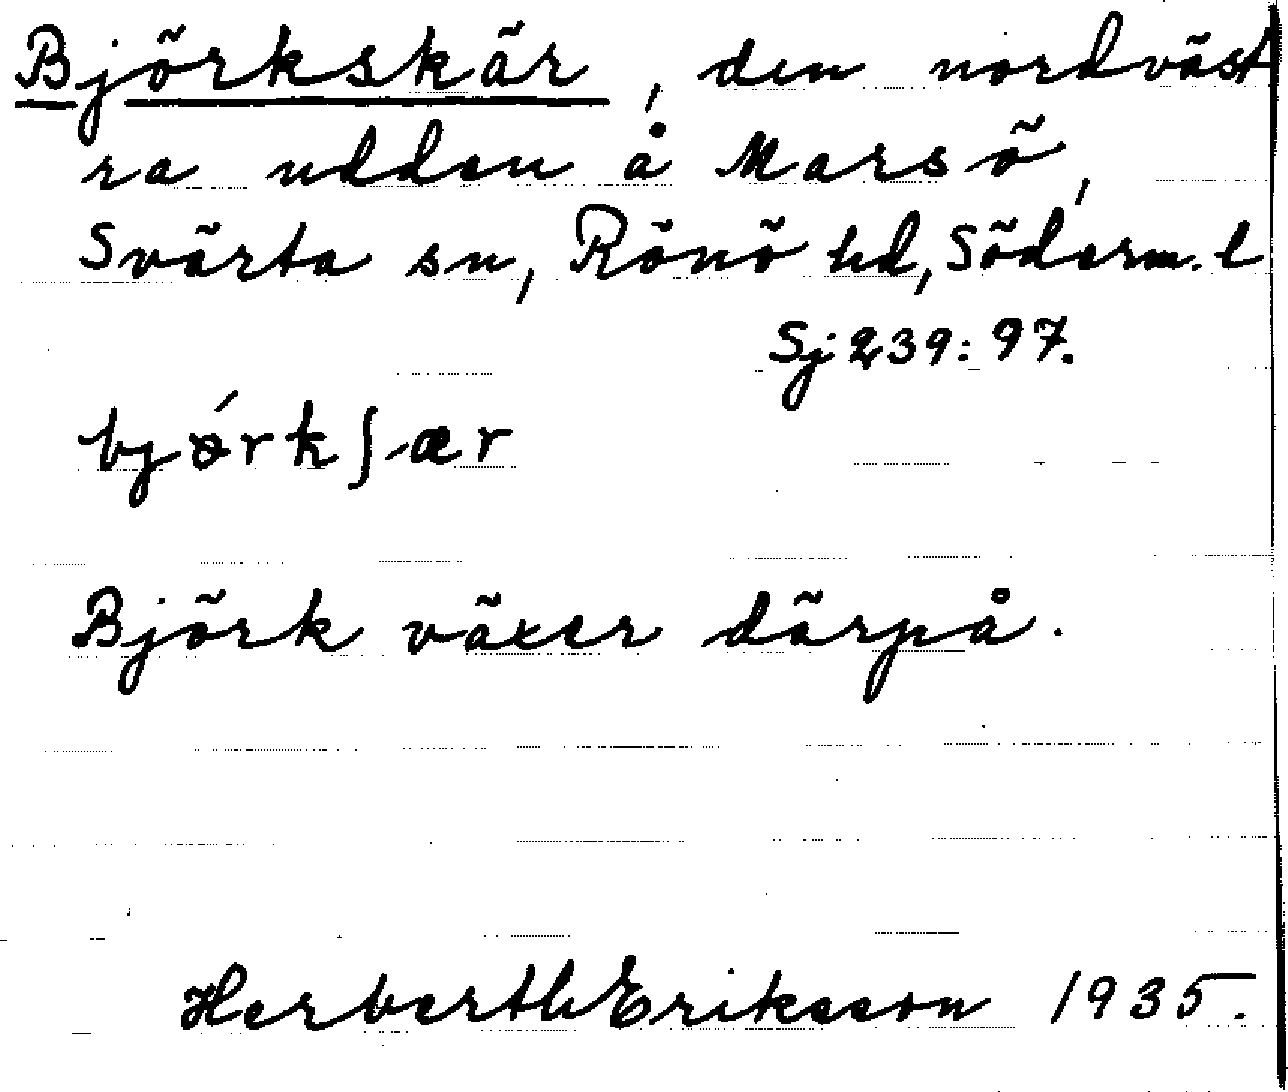 Björkskär, den nordväst
ra udden å Marsö,
Svärta sn, Rönö hd, Söderm. l
Sj 239: 97.
bjǿrkʃær
Björk växer därpå.
Herberth Eriksson 1935.